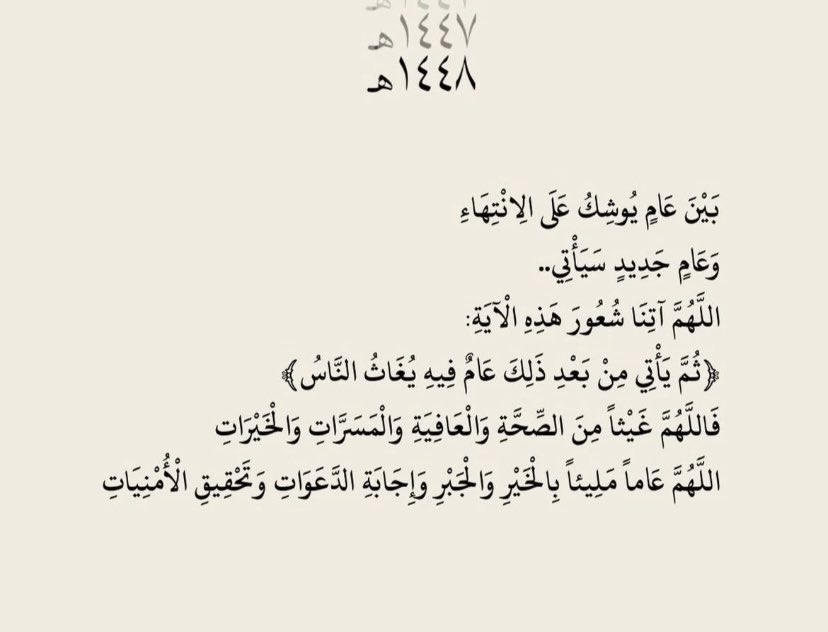 ١٤٤٧هـ
١٤٤٨هـ
بَيْنَ عَامٍ يُوشِكُ عَلَى الِانْتِهَاءِ
وَعَامٍ جَدِيدٍ سَيَأْتِي..
اللَّهُمَّ آتِنَا شُعُورَ هَذِهِ الْآيَةِ:
﴿ثُمَّ يَأْتِي مِنْ بَعْدِ ذَلِكَ عَامٌ فِيهِ يُغَاثُ النَّاسُ﴾
فَاللَّهُمَّ غَيْثاً مِنَ الصِّحَّةِ وَالْعَافِيَةِ وَالْمَسَرَّاتِ وَالْخَيْرَاتِ
اللَّهُمَّ عَاماً مَلِيئاً بِالْخَيْرِ وَالْجَبْرِ وَإِجَابَةِ الدَّعَوَاتِ وَتَحْقِيقِ الْأُمْنِيَاتِ